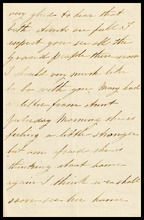 very glad to hear that
both Aunts are full. I
expect you see all the
grand people there now
I should very much like
to be with you. Mary had
a letter from Aunt
yesterday morning she is
feeling a little stronger
but am afraid she is
thinking about home
again I think we shall
soon see her home